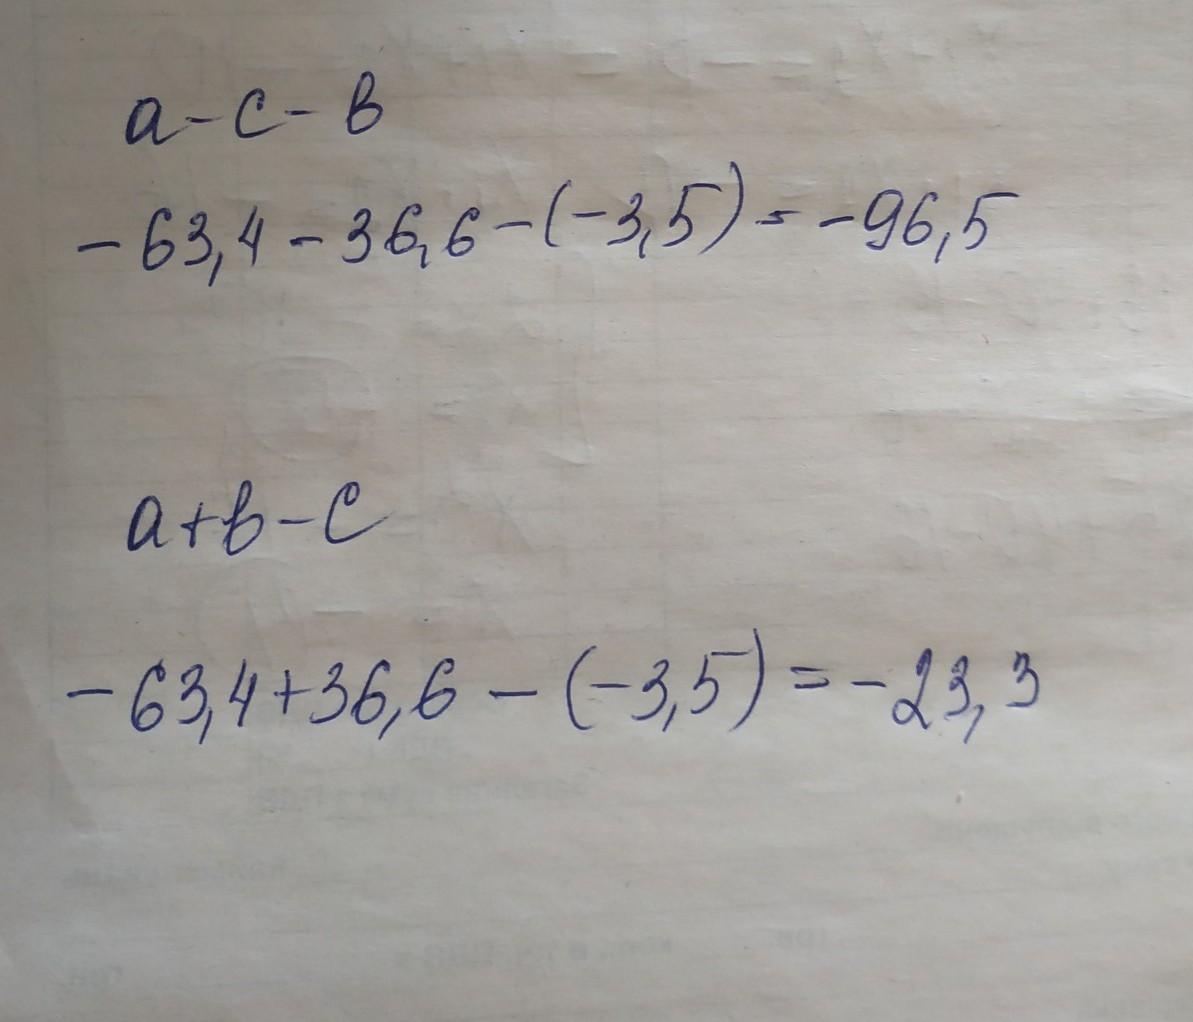 a-c-в
-63,4-36,6-(-3,5)=-96,5
a+в-c
-63,4+36,6-(-3,5)=-23,3